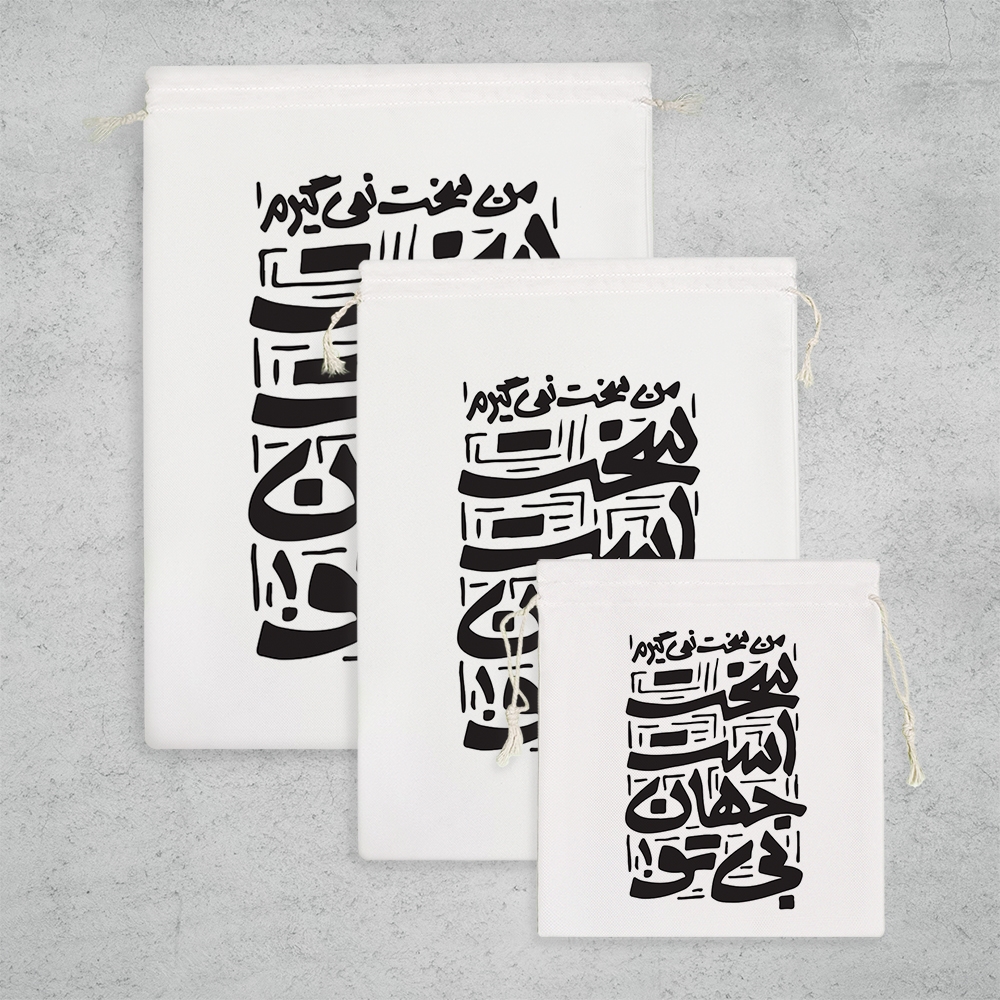 من سخت نمی گیرم
سخت
است
جهان
بی تو!
من سخت نمی گیرم
سخت
است
من سخت نمی گیرم